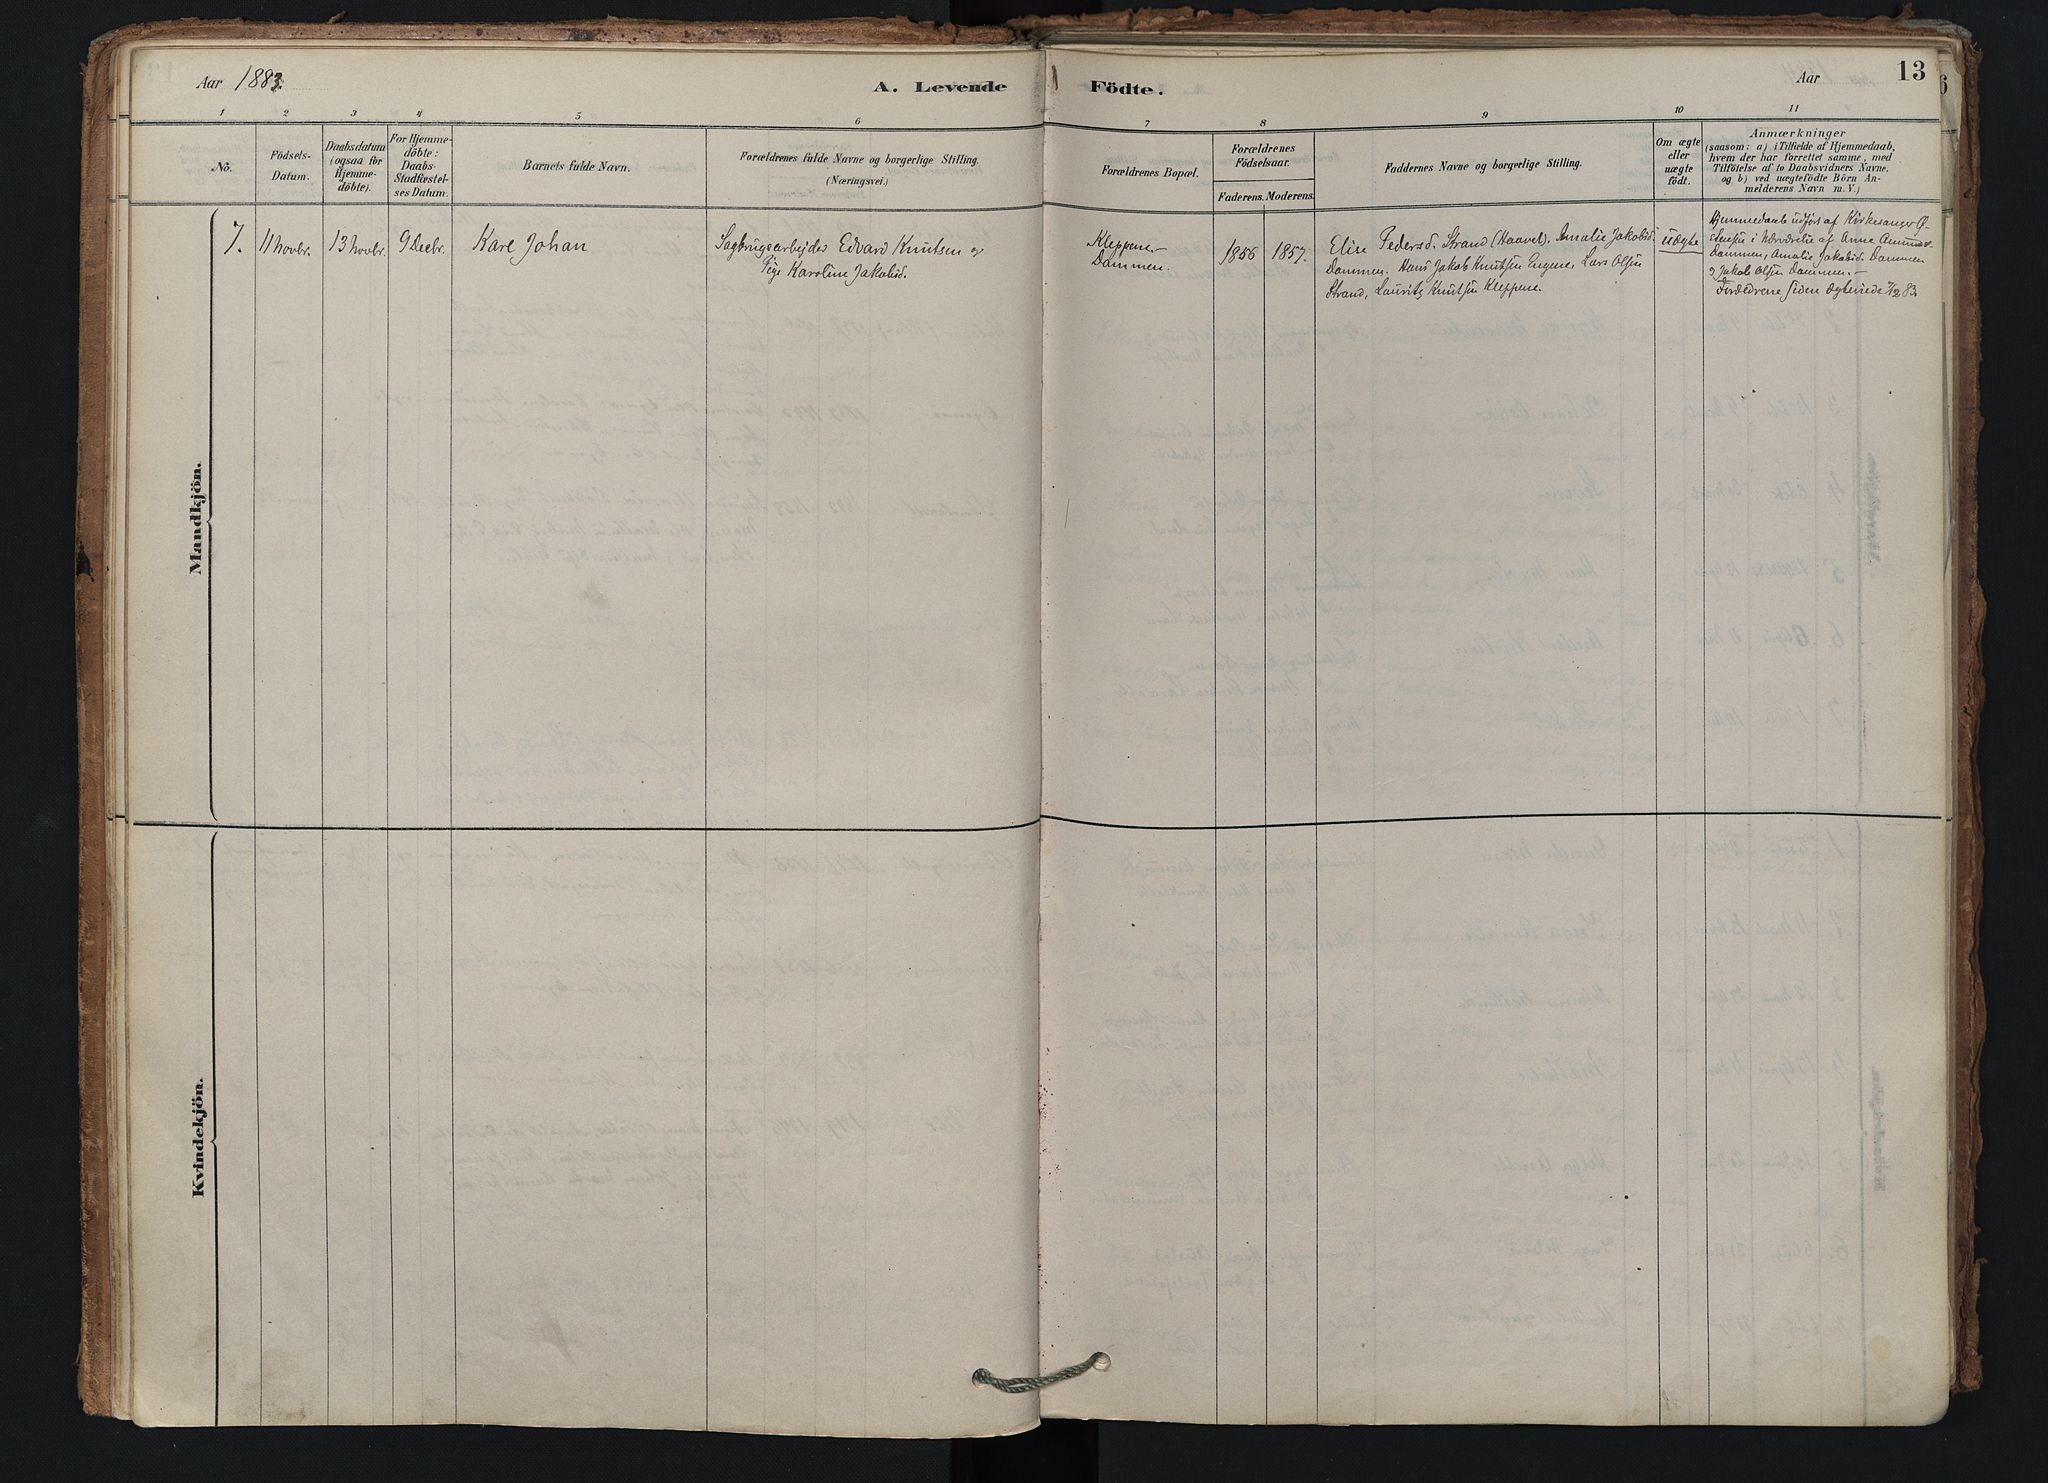 Aar 1883.
A. Levende
Födte.
Aar
13
1
2
3
4
5
6
7
8
9
10
11
No.
Födsels-
Datum.
Daabsdatum
(ogsaa for
Hjemme-
döbte).
For Hjemme-
döbte:
Daabs-
Stadfæstel-
ses Datum.
Barnets fulde Navn.
Forældrenes fulde Navne og borgerlige Stilling.
(Næringsvei.)
Forældrenes Bopæl.
Forældrenes
Födselsaar.
Faderens.
Moderens.
Faddernes Navne og borgerlige Stilling.
Om ægte
eller
uægte
födt.
Anmærkninger
(saasom: a) i Tilfælde af Hjemmedaab,
hvem der har forrettet samme, med
Tilföielse af to Daabsvidners Navne,
og b) ved uægtefödte Börn An-
melderens Navn m. V.)
Mandkjön.
7.
11 Novbr.
13 Novbr.
9 Decbr.
Karl Johan
Sagbrugsarbejder Edvard Knutsen og
Pige Karoline Jakobsd.
Kleppene-
Dammen.
1856
1857.
Elise Pedersd. Strand (Haavet), Amalie Jakobsd.
Dammen. Hans Jakob Knutsen Engene, Lars Olsen
Strand, Laurits Knutsen Kleppene.
Uægte
Hjemmedaab udført af Kirkesanger Ø-
stensen i Nærværelse af Anne Amunds.
Dammen, Amalie Jakobsd. Dammen
og Jakob Olsen Dammen. -
Forældrene siden ægteviede 7/12 83.
Kvindekjön.